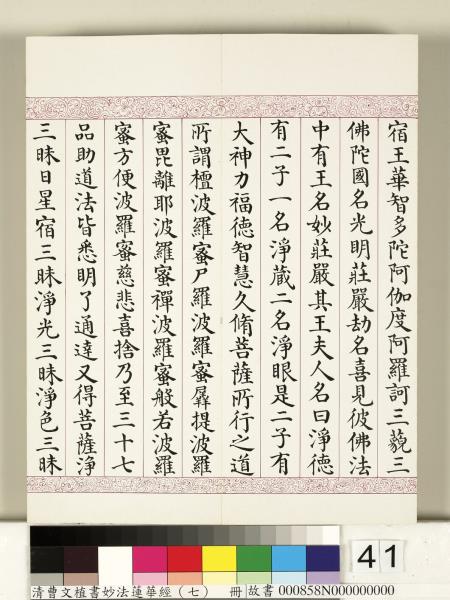 宿王華智多陀阿伽度阿羅訶三藐三
佛陀國名光明莊嚴劫名喜見彼佛法
中有王名妙莊嚴其王夫人名曰淨德
有二子一名淨藏二名淨眼是二子有
大神力福德智慧久脩菩薩所行之道
所謂檀波羅蜜尸羅波羅蜜羼提波羅
蜜毘離耶波羅蜜禪波羅蜜般若波羅
蜜方便波羅蜜慈悲喜捨乃至三十七
品助道法皆悉明了通達又得菩薩淨
三昧日星宿三昧淨光三昧淨色三昧
41
清曹文植書妙法蓮華經（七） 冊 故書 000858N000000000